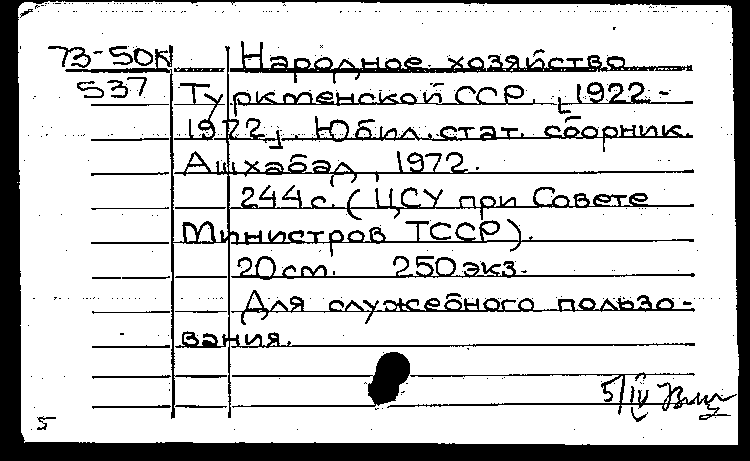 73-50К Народное хозяйство
537 Туркменской ССР. [1922-
1922]. Юбил. стат. сборник.
Ашхабад, 1972.
244 с. (ЦСУ при Совете
Министров ТССР).
20 см. 250 экз.
Для служебного пользо-
вания.
5/IV
5